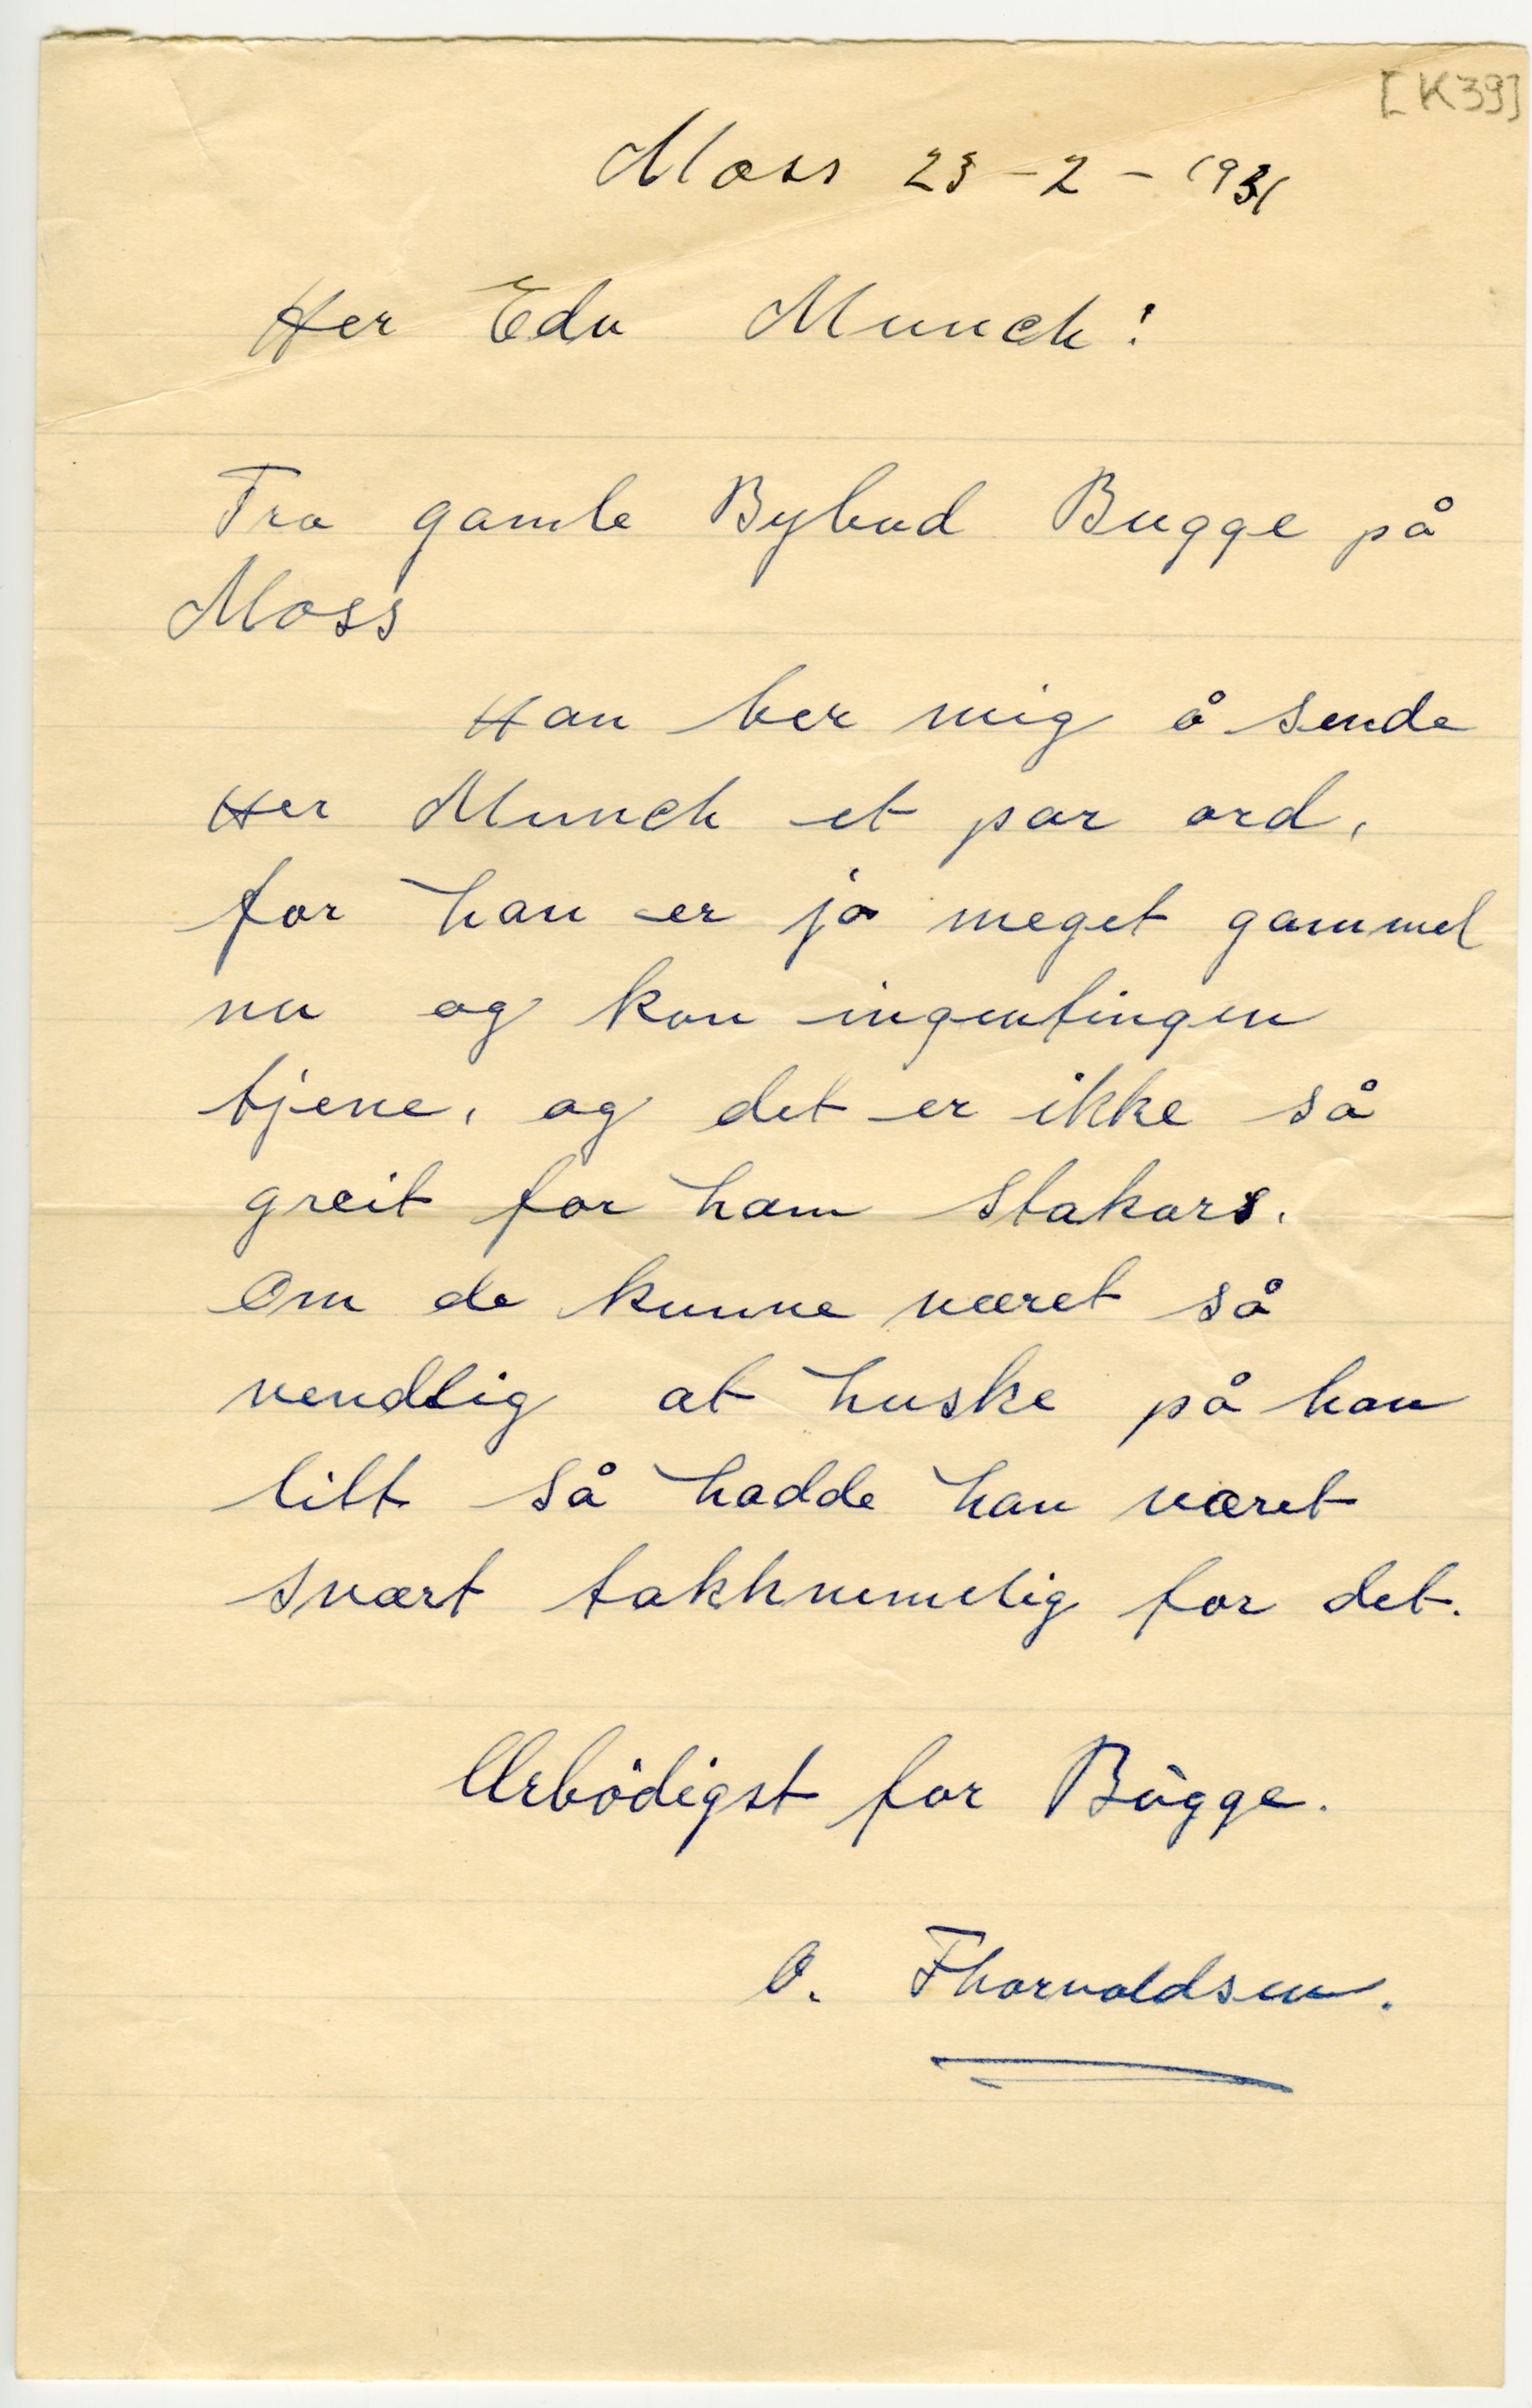 [K39]
Moss 23-2-1931
Her Edv Munch!
Fra gamle Bybud Bugge på
Moss
Han ber mig å sende
Her Munch et par ord,
for han er jo meget gammel
nu og kan ingentingen
tjene, og det er ikke så
greit for ham stakars.
Om de kunne været så
vendlig at huske på han
litt så hadde han været
svært takknemelig for det.
Ærbödigst for Bugge.
O. Thorvaldsen.